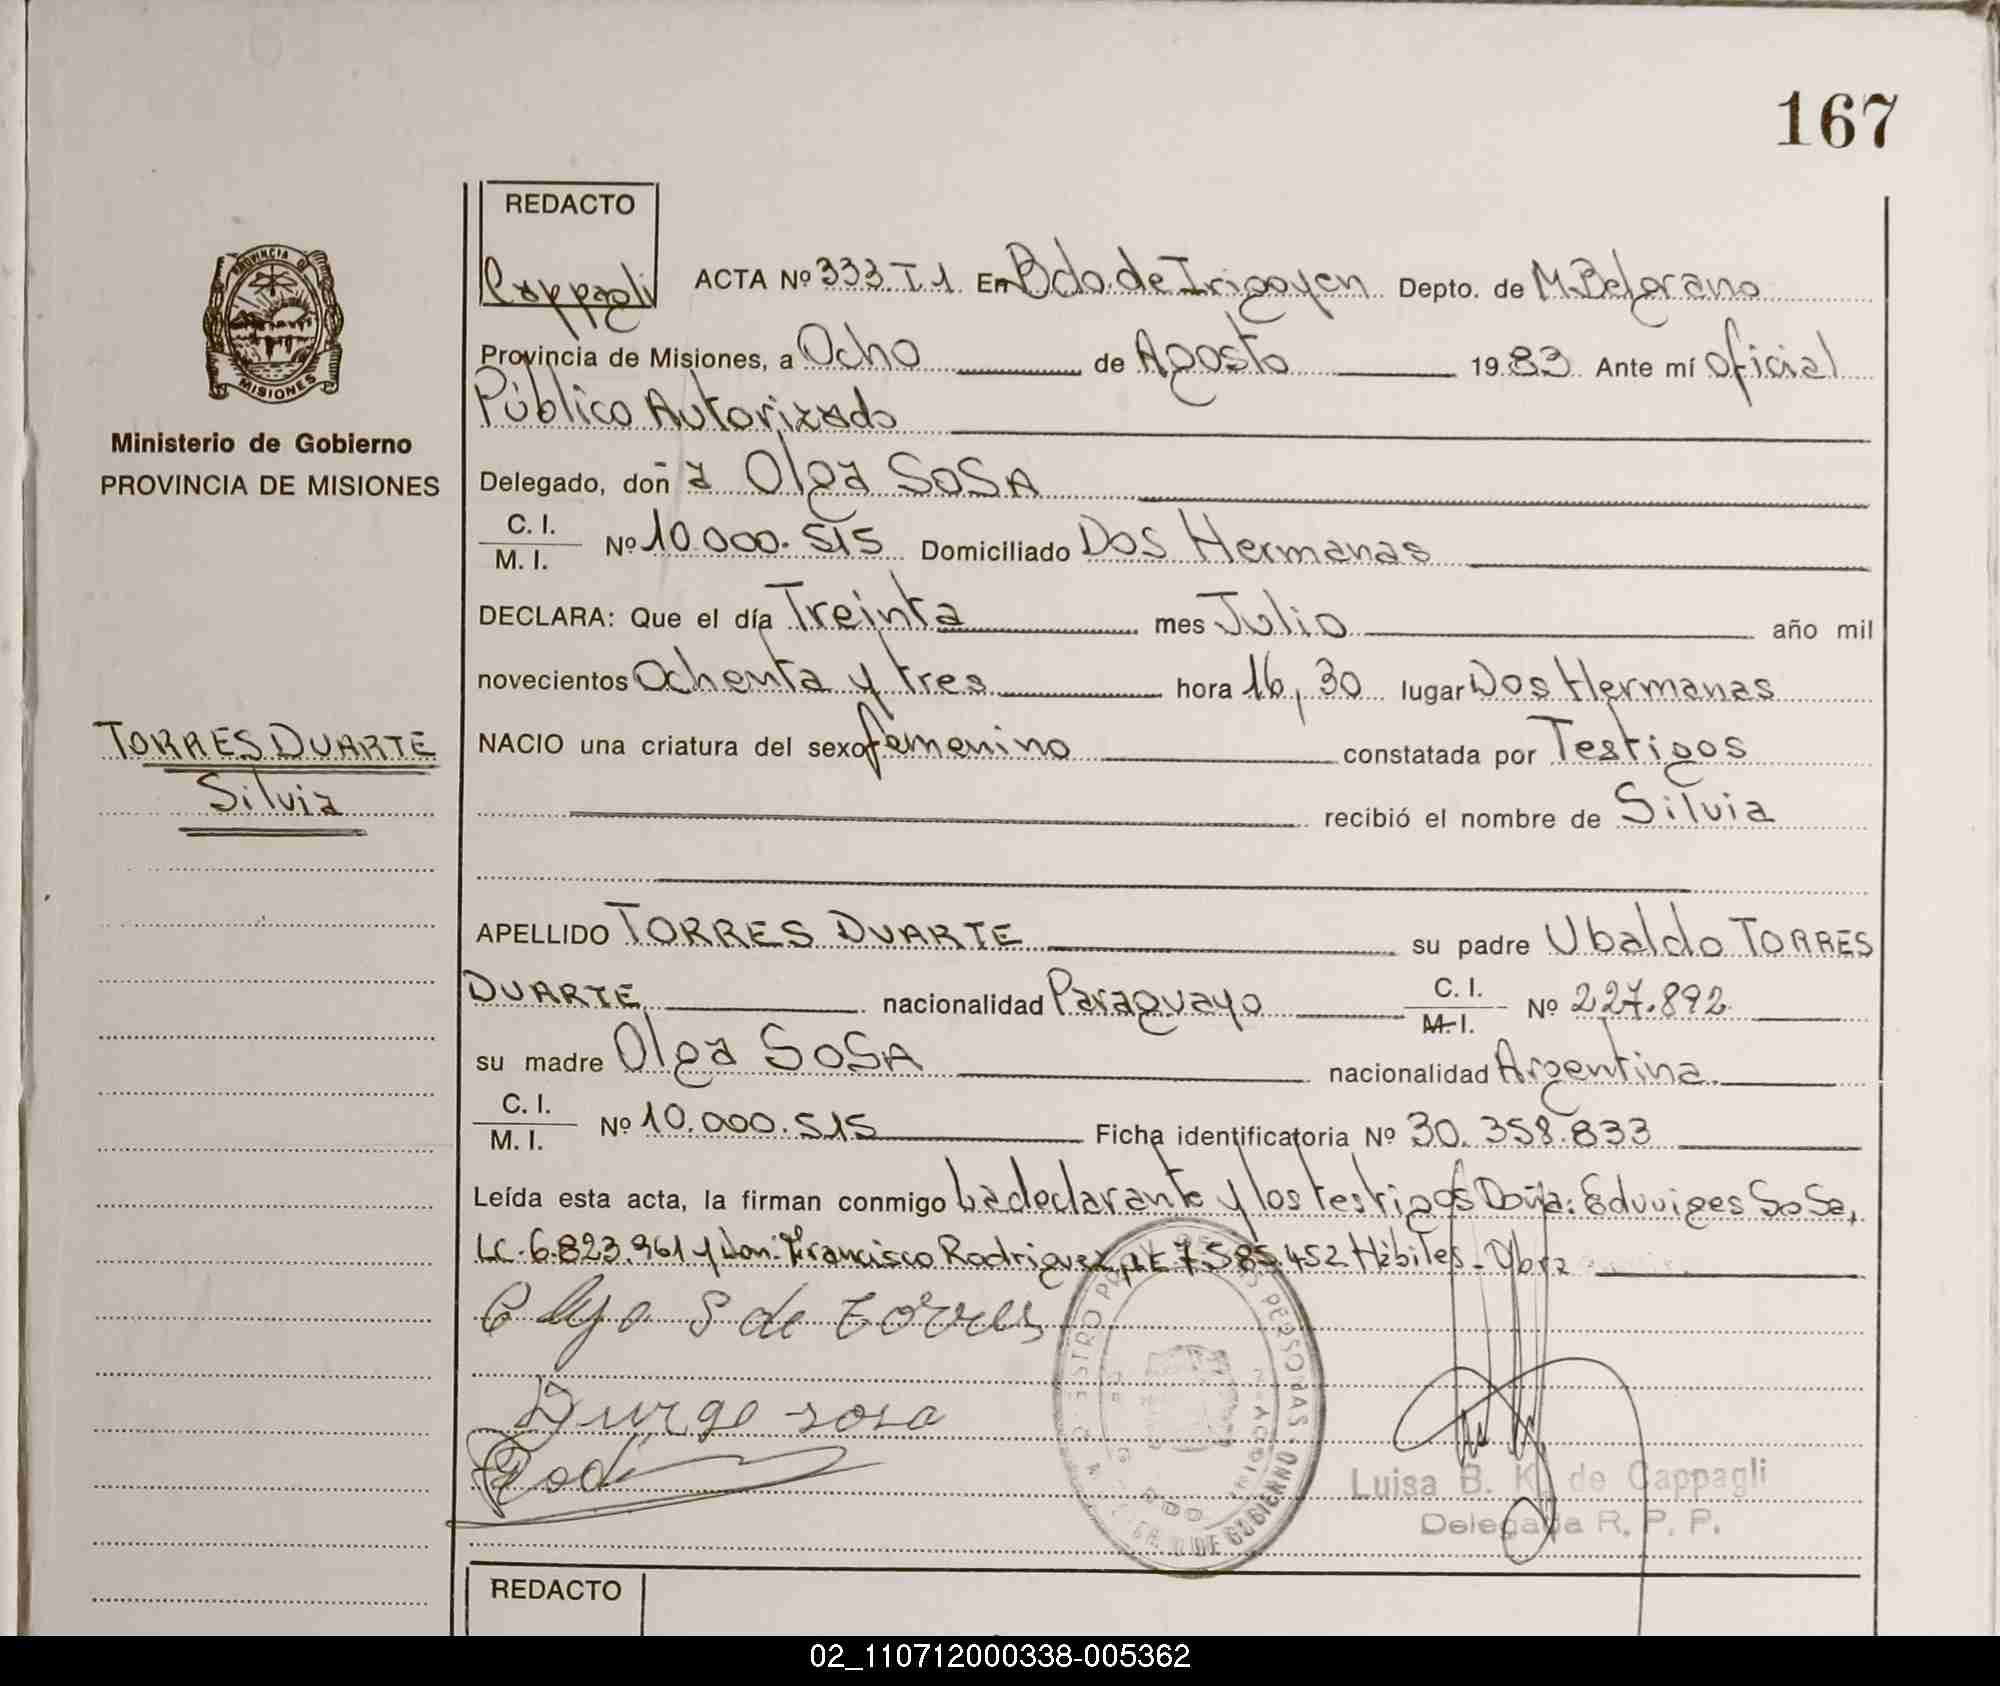 167
REDACTO
Cappagli
ACTA Nº 333. T 1 En Bdo. de Irigoyen Depto. de M. Belgrano
PROVINCIA DE
MISIONES
Provincia de Misiones, a Ocho de Agosto 1983 Ante mí Oficial
Público Autorizado
Ministerio de Gobierno
PROVINCIA DE MISIONES
Delegado, doñ a Olga SOSA
C. I.
M. I. Nº 10.000.515 Domiciliado Dos Hermanas
DECLARA: Que el día Treinta mes Julio año mil
novecientos Ochenta y tres hora 16,30 lugar Dos Hermanas
TORRES DUARTE
Silvia
NACIO una criatura del sexo femenino constatada por Testigos
recibió el nombre de Silvia
APELLIDO TORRES DUARTE su padre Ubaldo TORRES
DUARTE nacionalidad Paraguayo C. I. M. I. Nº 227.892
su madre Olga SOSA nacionalidad Argentina.
C. I.
M. I. Nº 10.000.515 Ficha identificatoria Nº 30.358.833
Leída esta acta, la firman conmigo La declarante y los testigos Doña: Eduviges Sosa,
LC. 6.823.961 y Don: Francisco Rodriguez, LE 7.585.452 Hábiles - Obra
Olga S de Torres
sosa
Rodi
PERSONAS
IRIGOYEN
DE GOBIERNO
Luisa B. K. de Cappagli
Delegada R. P. P.
REDACTO
02_110712000338-005362